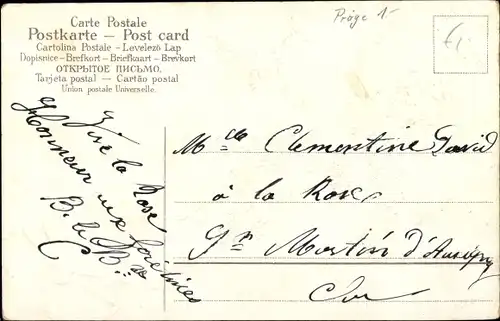 Carte Postale
Postkarte — Post card
Cartolina Postale – Levelező Lap
Dopisnice – Brefkort – Briefkaart – Brevkort
ОТКРЫТОЕ ПИСЬМО.
Tarjeta postal — Cartão postal
Union postale Universelle.
Präge 1-
Vive la Rose
Honneur aux
B. de B.
Mlle Clementine David
à la Rose
St Martin d'Aubigny